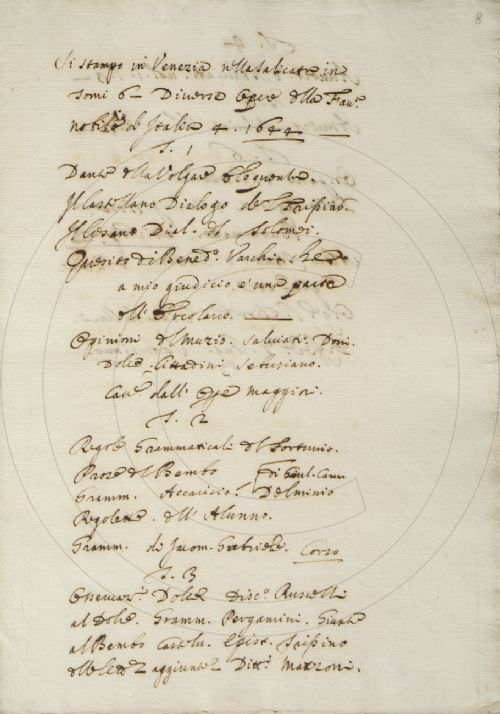 8
Si stampò in Venezia nella Salicata in
tomi 6 Diverse Opere della Fav.
nobiltà di Italia 4. 1644
T. 1
Dante della Volgare Eloquentia.
Il Castellano Dialogo del Trissino.
Il Cesano Dial. de Tolomei.
Quesito di Bened.º Varchi che
a mio giudicio è una parte
dell' Ercolano.
Opinioni del Muzio. Salviati. Doni.
Dolce. Cittadini
Cav. dall' Maggiori.
T. 2
Regole Grammaticali del Fortunio.
Prose del Bembo di Giul. Cam.
Gramm. Accarisio. Delminio
Regolette dell' Alunno.
Gramm. di Jacom. Gabriele. Corso
T. 3
Osservaz. Dolce Disc.º Ruscelli
al Dolce. Gramm. Pergamini. Giunte
al Bembo Castelv. Epist. Trissino
delle aggiunte